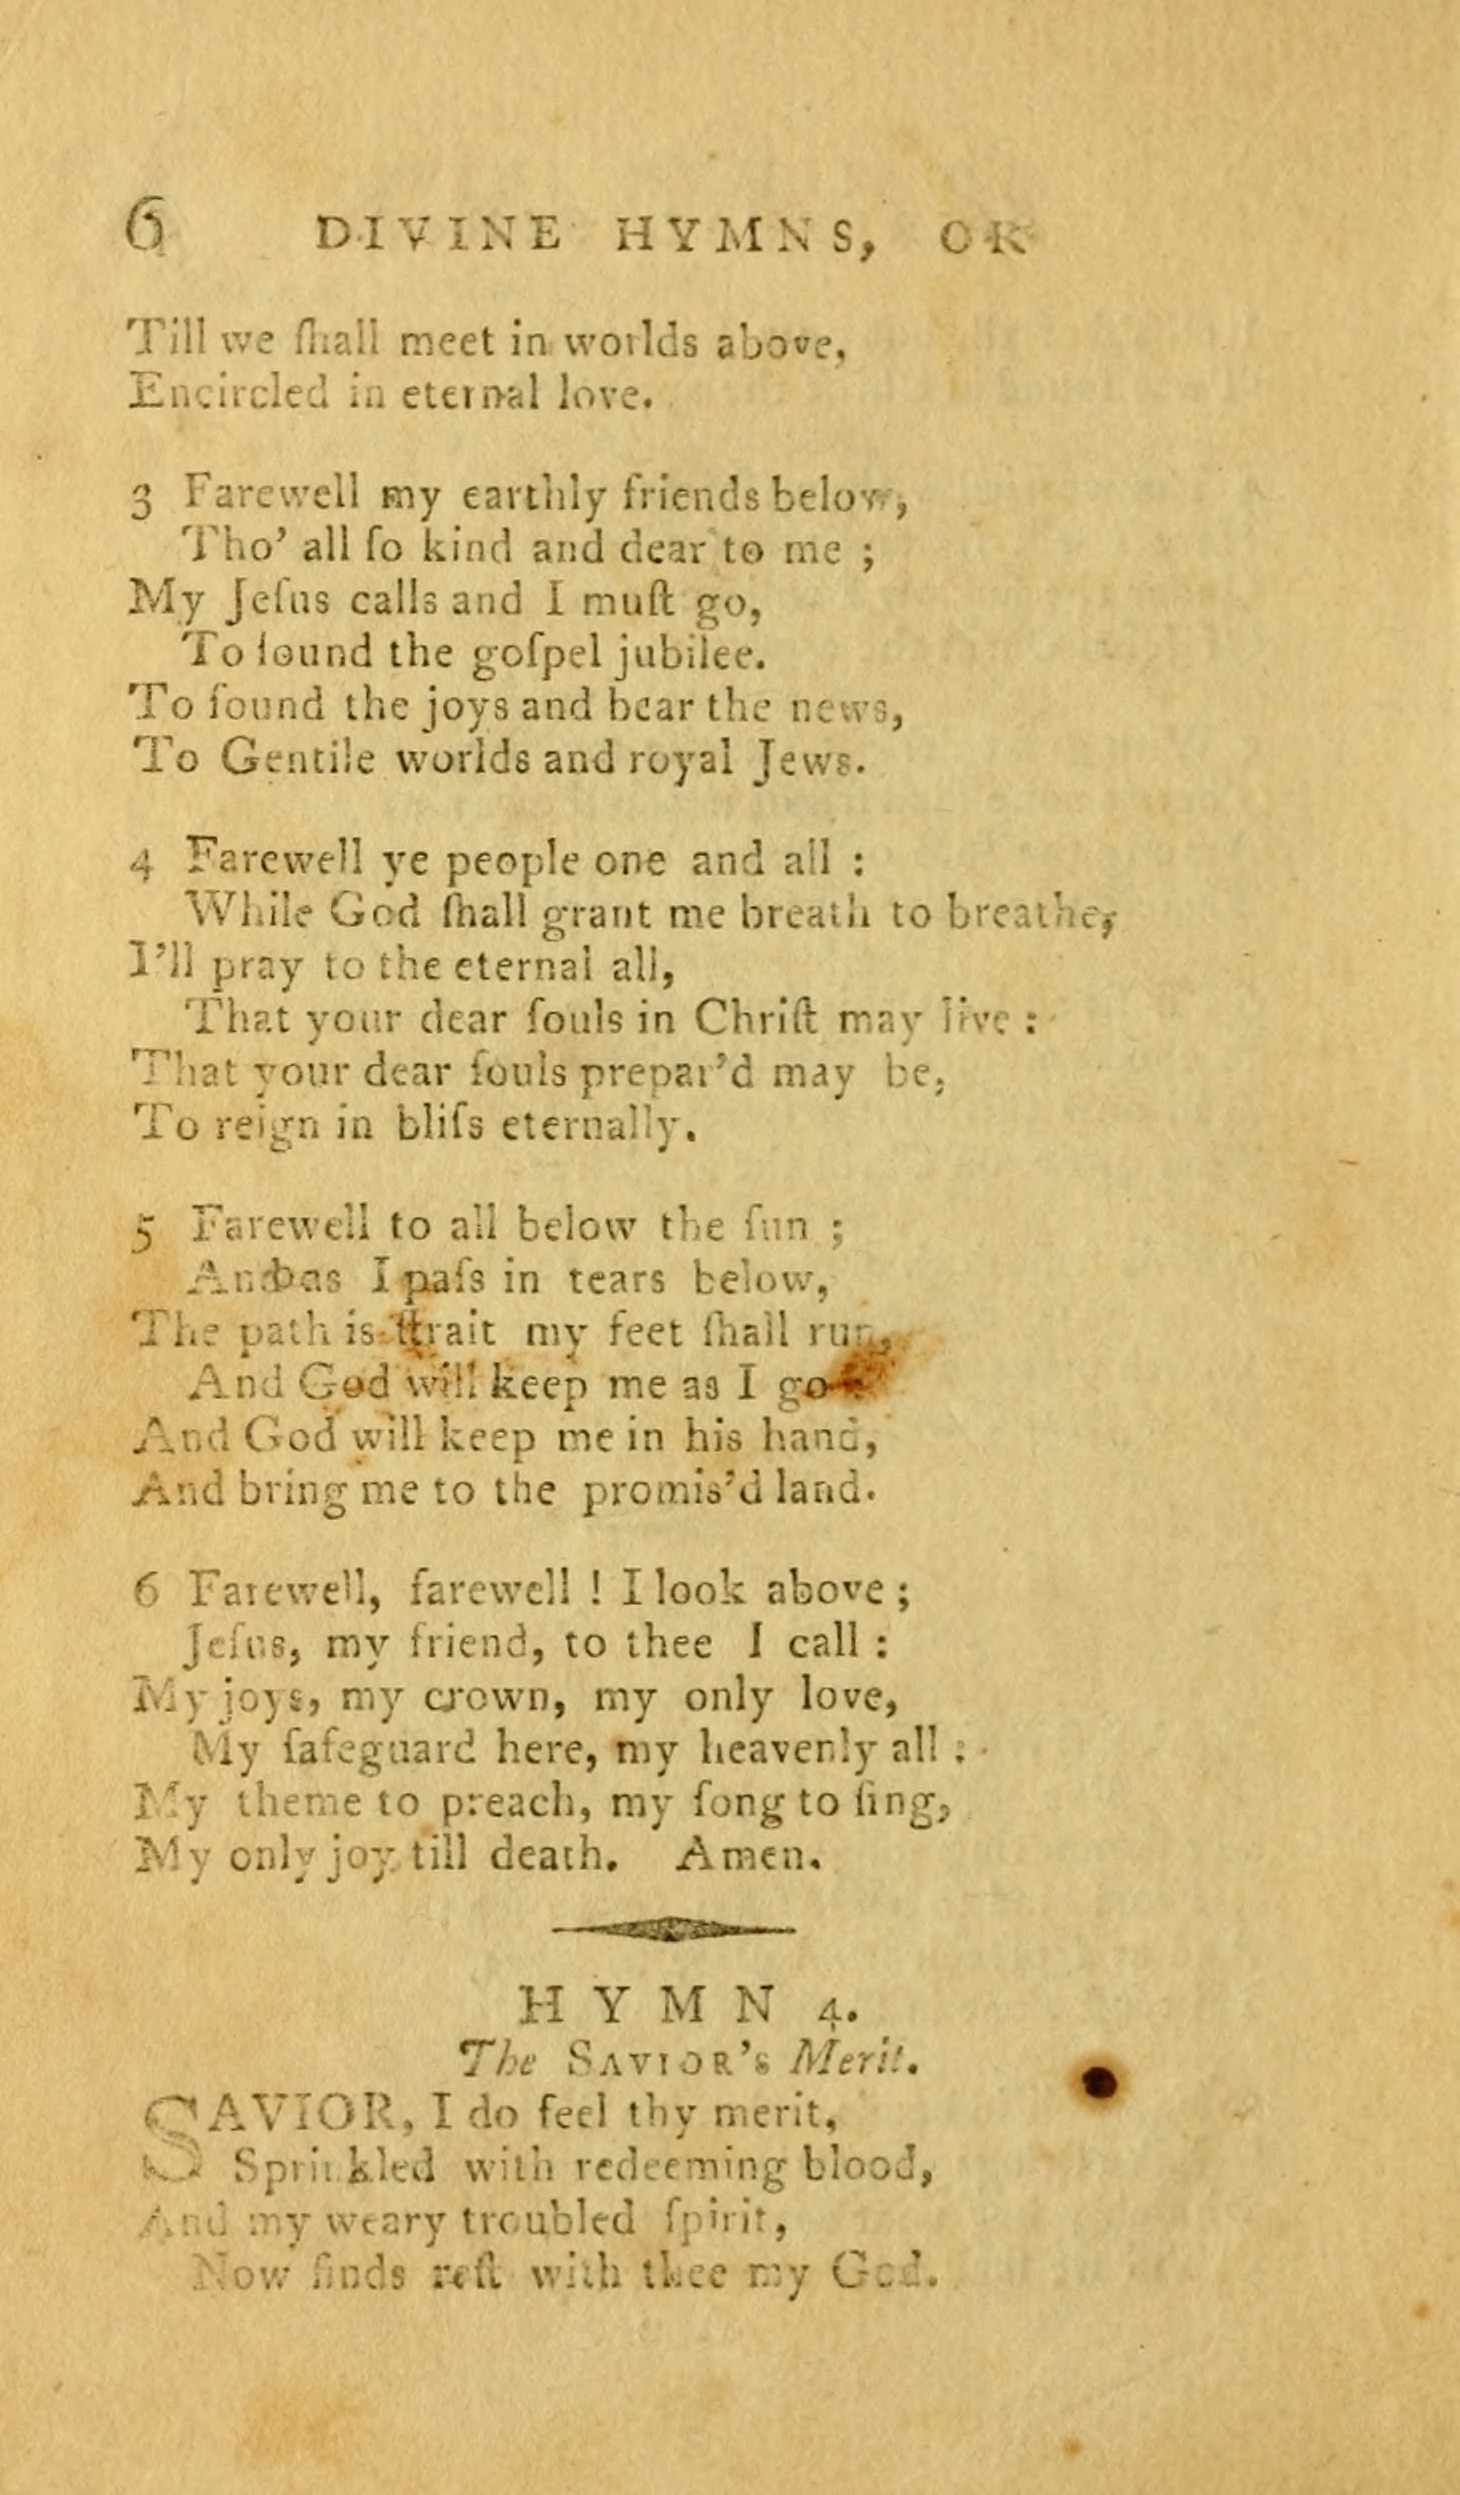 6 DIVINE HYMNS, OR
Till we ſhall meet in worlds above,
Encircled in eternal love.
3 Farewell my earthly friends below,
Tho' all ſo kind and dear to me ;
My Jeſus calls and I muſt go,
To ſound the goſpel jubilee.
To ſound the joys and bear the news,
To Gentile worlds and royal Jews.
4 Farewell ye people one and all :
While God ſhall grant me breath to breathe,
I'll pray to the eternal all,
That your dear ſouls in Chriſt may live :
That your dear ſouls prepar'd may be,
To reign in bliſs eternally.
5 Farewell to all below the ſun ;
And as I paſs in tears below,
The path is ſtrait my feet ſhall run,
And God will keep me as I go :
And God will keep me in his hand,
And bring me to the promis'd land.
6 Farewell, farewell ! I look above ;
Jeſus, my friend, to thee I call :
My joys, my crown, my only love,
My ſafeguard here, my heavenly all :
My theme to preach, my ſong to ſing,
My only joy till death. Amen.
HYMN 4.
The SAVIOR's Merit.
SAVIOR, I do feel thy merit,
Sprinkled with redeeming blood,
And my weary troubled ſpirit,
Now finds reſt with thee my God.